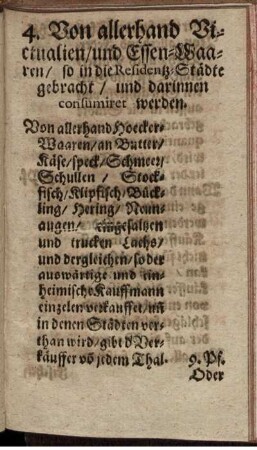 4. Von allerhand Vi-
ctualien/und Essen-Waa-
ren/ so in die Residentz-Städte
gebracht/ und darinnen
consumiret werden.
Von allerhand Hoecker-
Waaren/an Butter/
Käse/speck/Schmeer/
Schullen/ Stock-
fisch/Klipfisch/Bück-
ling/ Hering/ Neun-
augen/ eingesaltzen
und trucken Lachs/
und dergleichen/so der
auswärtige und ein-
heimische Kauffmann
einzelen verkauffet/uñ
in denen Städten ver-
than wird/gibt d Ver-
käuffer võ jedem Thal. 9. Pf.
Oder